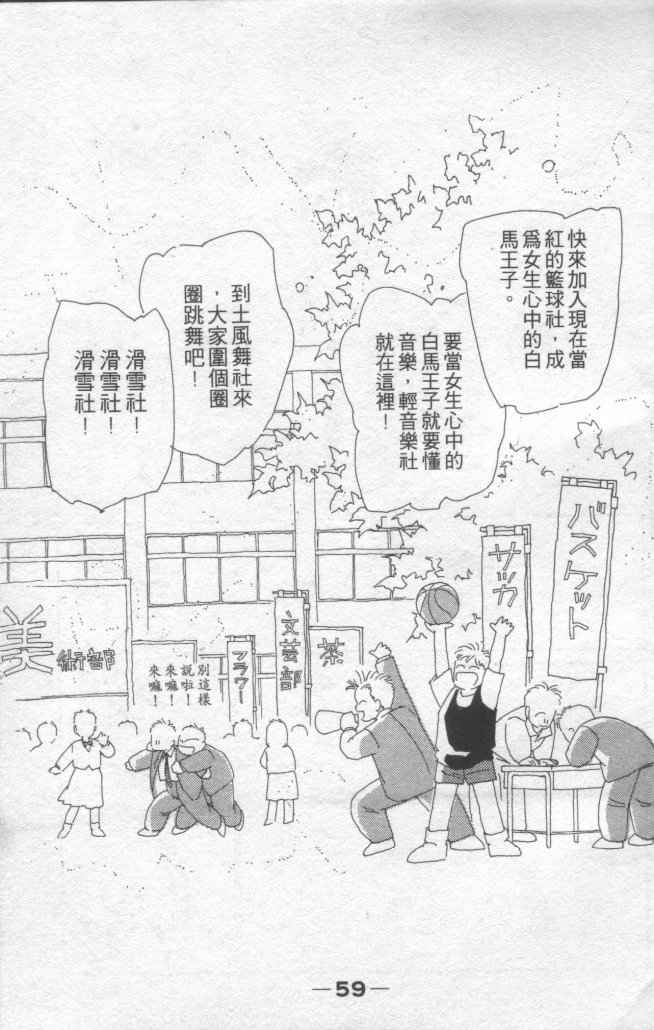 快來加入現在當
紅的籃球社，成
爲女生心中的白
馬王子。
要當女生心中的
白馬王子就要懂
音樂，輕音樂社
就在這裡！
到土風舞社來
，大家圍個圈
圈跳舞吧！
滑雪社！
滑雪社！
滑雪社！
バスケット
サッカー
茶
文芸部
フラワー
別這樣
說啦！
來嘛！
來嘛！
美術部
—59—